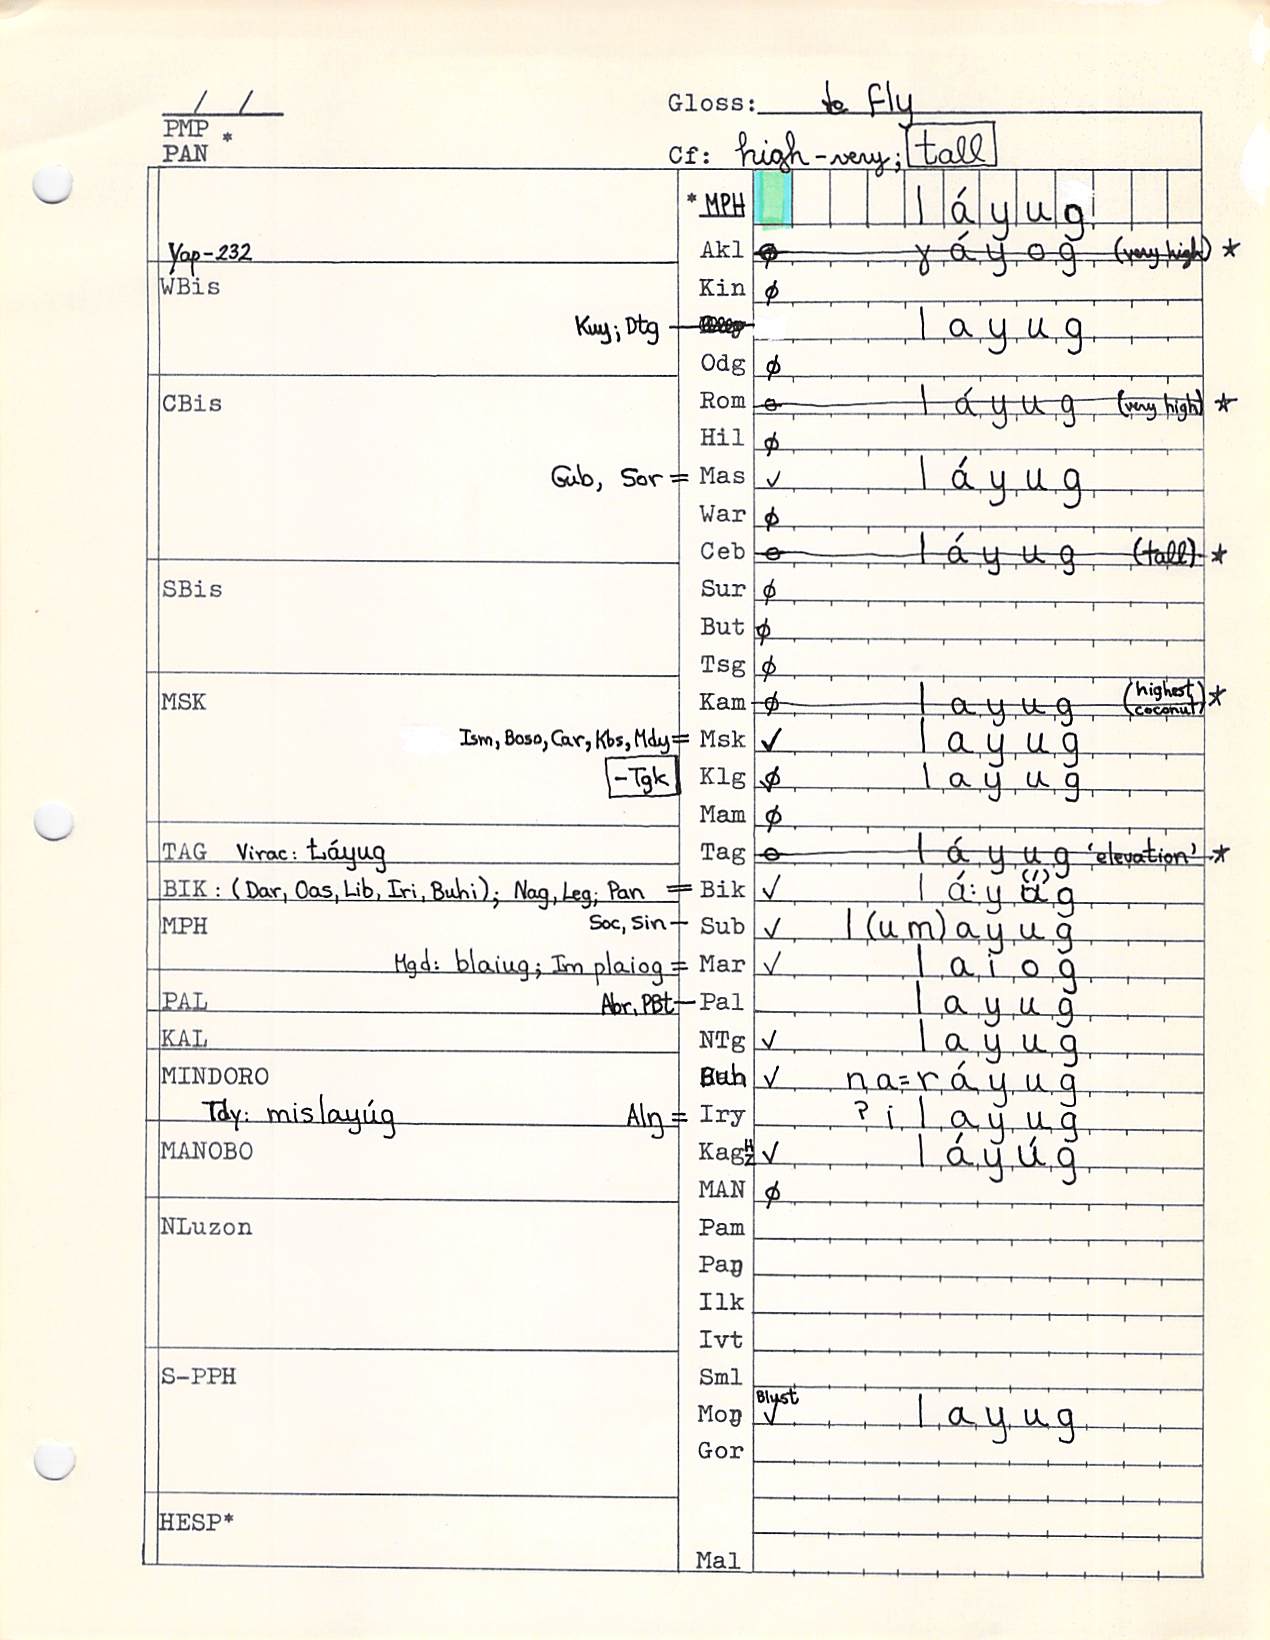 / / Gloss: to fly
PMP *
PAN Cf: high-very; tall
*MPH láyug
Yap-232 Akl ∅ ɣáyog (very high) *
WBis Kin ∅
Kuy; Dtg — layug
Odg ∅
CBis Rom láyug (very high) *
Hil ∅
Gub, Sor = Mas ✓ láyug
War ∅
Ceb láyug (tall) *
SBis Sur ∅
But ∅
Tsg ∅
MSK Kam ∅ layug (highest coconut) *
Ism, Boso, Car, Kbs, Mdy = Msk ✓ layug
-Tgk Klg layug
Mam ∅
TAG Virac: táyug Tag láyug 'elevation' *
BIK: (Dar, Oas, Lib, Iri, Buhi); Nag, Leg; Pan = Bik ✓
MPH Soc, Sin — Sub ✓ l(um)ayug
Mgd: blaiug; Im plaiog = Mar ✓ laiog
PAL Abr, PBt — Pal layug
KAL NTg ✓ layug
MINDORO Buh ✓ na=ráyug
Tdy: mislayúg Alŋ = Iry ʔilayug
MANOBO Kag ✓ láyúg
MAN ∅
NLuzon Pam
Paŋ
Ilk
Ivt
S-PPH Sml
Blust
Moŋ ✓ layug
Gor
HESP*
Mal